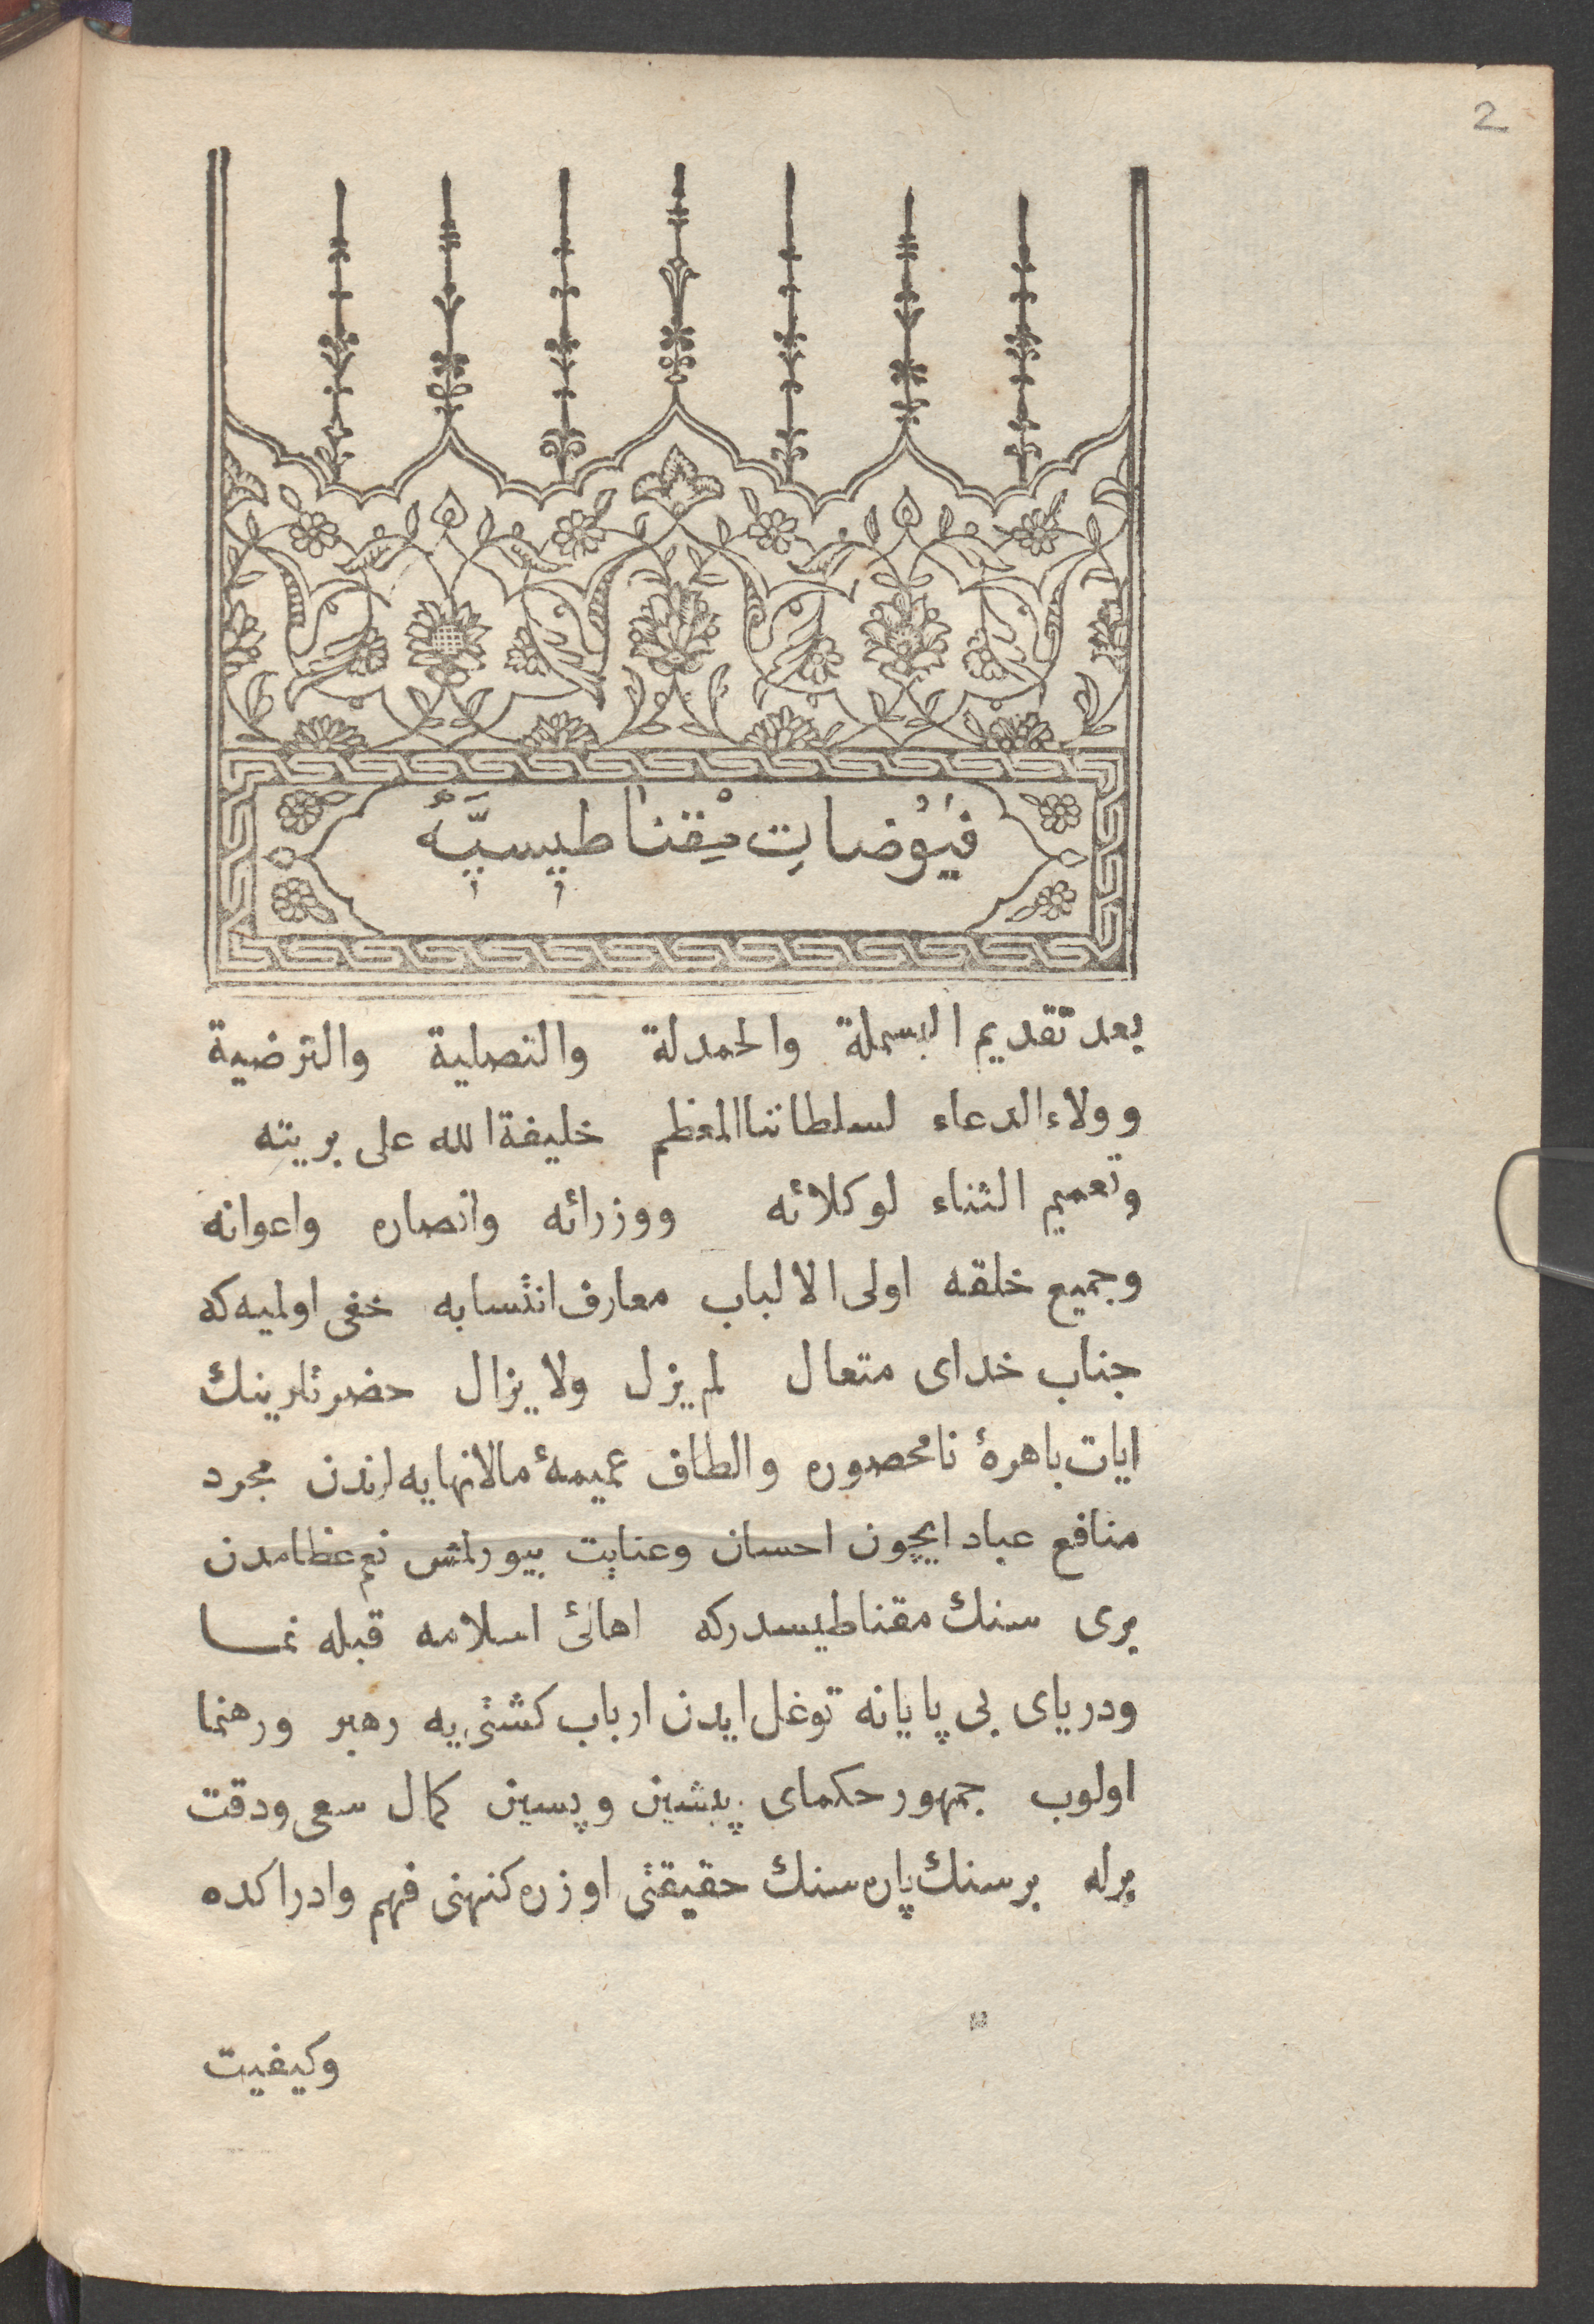 2
فيوضات مقناطيسيه
بعد تقديم البسملة والحمدلة والتصلية والترضية
وولاء الدعاء لسلطاننا المعظم خليفة الله على بريته
وتعميم الثناء لوكلائه ووزرائه وانصاره واعوانه
وجميع خلقه اولى الالباب معارف انتسابه خفى اولميه كه
جناب خداى متعال لم يزل ولا يزال حضرتلرينك
ايات باهرۀ نامحصوره والطاف عميمۀ مالانهايه لرندن مجرد
منافع عباد ايچون احسان وعنايت بيورلمش نعم عظامدن
برى سنك مقناطيسدركه اهالئ اسلامه قبله نما
ودرياى بى پايانه توغل ايدن ارباب كشتى يه رهبر ورهنما
اولوب جمهور حكماى پيشين وپسين كمال سعى ودقت
برله بر سنك پاره سنك حقيقتى اوزره كنهنى فهم وادراكده
وكيفيت